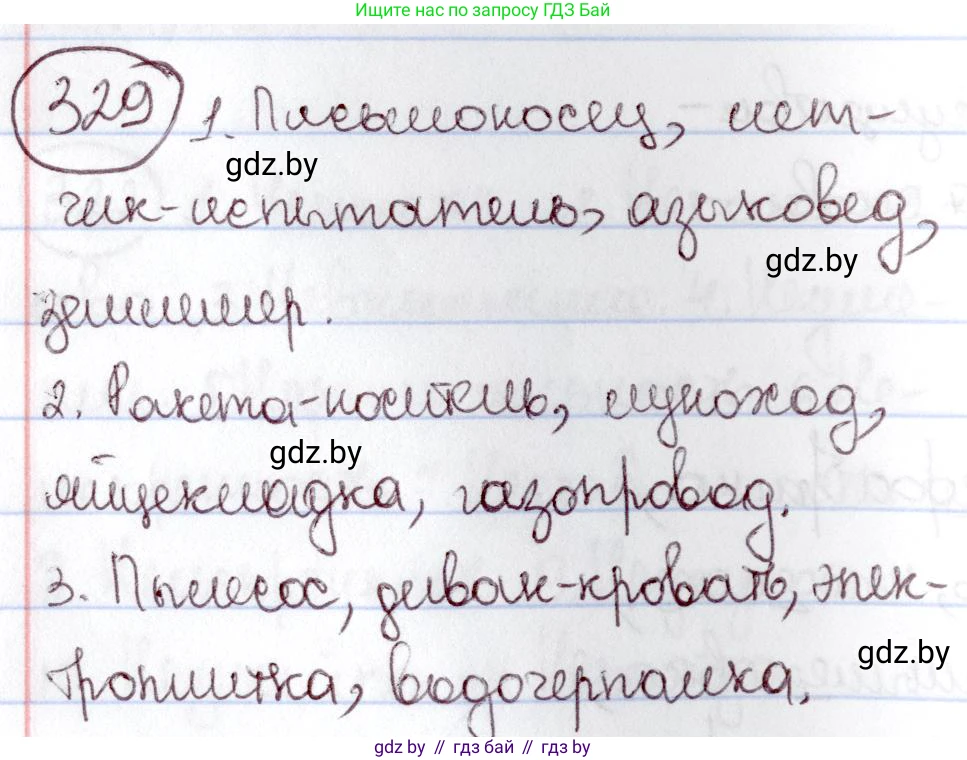 Ищите нас по запросу ГДЗ Бай
329 1. Письмоносец, лет-
gdz.by
чик-испытатель, языковед,
gdz.by
землемер.
2. Ракета-носитель, луноход,
gdz.by
яйцекладка, газопровод.
3. Пылесос, диван-кровать, элек-
gdz.by
троплитка, водочерпалка.
gdz.by // гдз бай // гдз by